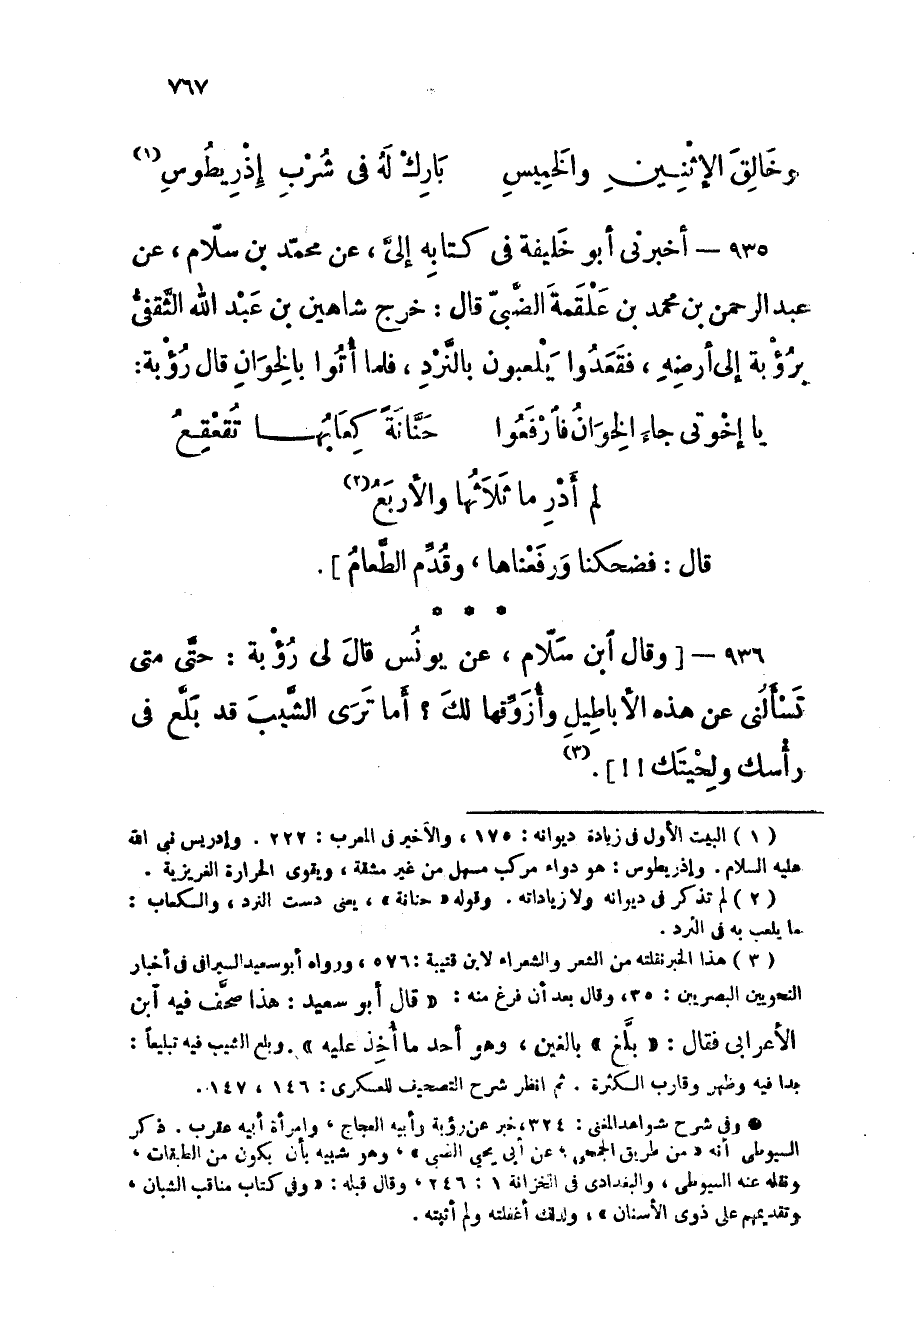 ٧٦٧
وخَالِقَ الإثْنِينِ والخَمِيسِ بَارِكْ لَهُ فى شُرْبِ إِذْرِيطُوسِ(١)
٩٣٥ – أخبرنى أبو خَليفة فى كتابِه إلىَّ ، عن محمّد بن سلّام ، عن
عبد الرحمن بن محمد بن عَلْقَمَةَ الضَّبىّ قال : خرج شاهين بن عَبْد الله الثَّقفىُّ
برُؤْبة إلى أرضِهِ ، فقَعَدُوا يَلْعبون بالنَّرْدِ ، فلما أُتُوا بالخِوَانِ قال رُؤْبة:
يا إخْوتى جاءَ الخِوَانُ فأرْفَعُوا حَنَّانَةً كِعَابُهَا تُقَعْقِعُ
لم أَدْرِ ما ثَلاَثُها والأربَعُ(٢)
قال : فضحكنا وَرفَعْناها ، وقُدِّم الطَّعامُ ] .
* * *
٩٣٦ – [ وقال أبن سَلّام ، عن يونُس قالَ لى رُؤْبة : حتَّى متى
تَسْألُنى عن هذه الأباطيلِ وأُزَوِّقها لكَ ؟ أما تَرَى الشَّيبَ قد بَلَّع فى
رأْسك ولِحْيتَك !! ] .(٣)
( ١ ) البيت الأول فى زيادة ديوانه : ١٧٥ ، والأخير فى المعرب : ٢٢٢ . وإدريس نبى الله
عليه السلام . وإذريطوس : هو دواء مركب مسهل من غير مشقة ، ويقوى الحرارة الغريزية .
( ٢ ) لم تذكر فى ديوانه ولا زياداته . وقوله « حنانة » ، يعنى دست النرد ، والكعاب :
ما يلعب به فى النرد .
( ٣ ) هذا الخبر نقلته من الشعر والشعراء لابن قتيبة : ٥٧٦ ، ورواه أبو سعيد السيرافى فى أخبار
النحويين البصريين : ٣٥، وقال بعد أن فرغ منه : « قال أبو سعيد : هذا صحَّف فيه آبن
الأعرابى فقال : « بلَّغ » بالغين ، وهو أحد ما أُخِذ عليه » . وبلع الشيب فيه تبليعاً :
بدا فيه وظهر وقارب الكثرة . ثم انظر شرح التصحيف للعسكرى : ١٤٦ ، ١٤٧ .
● وفى شرح شواهد المغنى : ٣٢٤، خبر عن رؤبة وأبيه العجاج ، وامرأة أبيه عقرب . ذكر
السيوطى أنه « من طريق الجمحى ، عن أبى يحيى الضبى » ، وهو شبيه بأن يكون من الطبقات ،
ونقله عنه السيوطى ، والبغدادى فى الخزانة ١ : ٢٤٦ ، وقال قبله : « وفى كتاب مناقب الشبان ،
وتقديمهم على ذوى الأسنان » ، ولذلك أغفلته ولم أثبته .